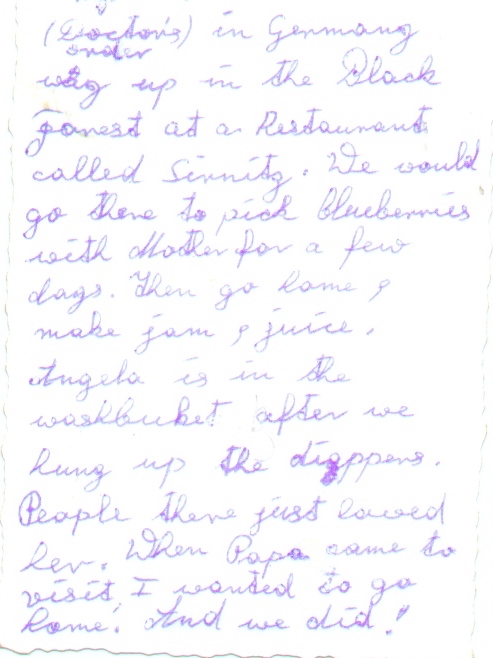 (Doctor's) in Germany
order
way up in the Black
Forest at a Restaurant
called Sirnitz. We would
go there to pick blueberries
with Mother for a few
days. Then go home &
make jam & juice.
Angela is in the
washbucket after we
hung up the diappers.
People there just loved
her. When Papa came to
visit, I wanted to go
home. And we did!